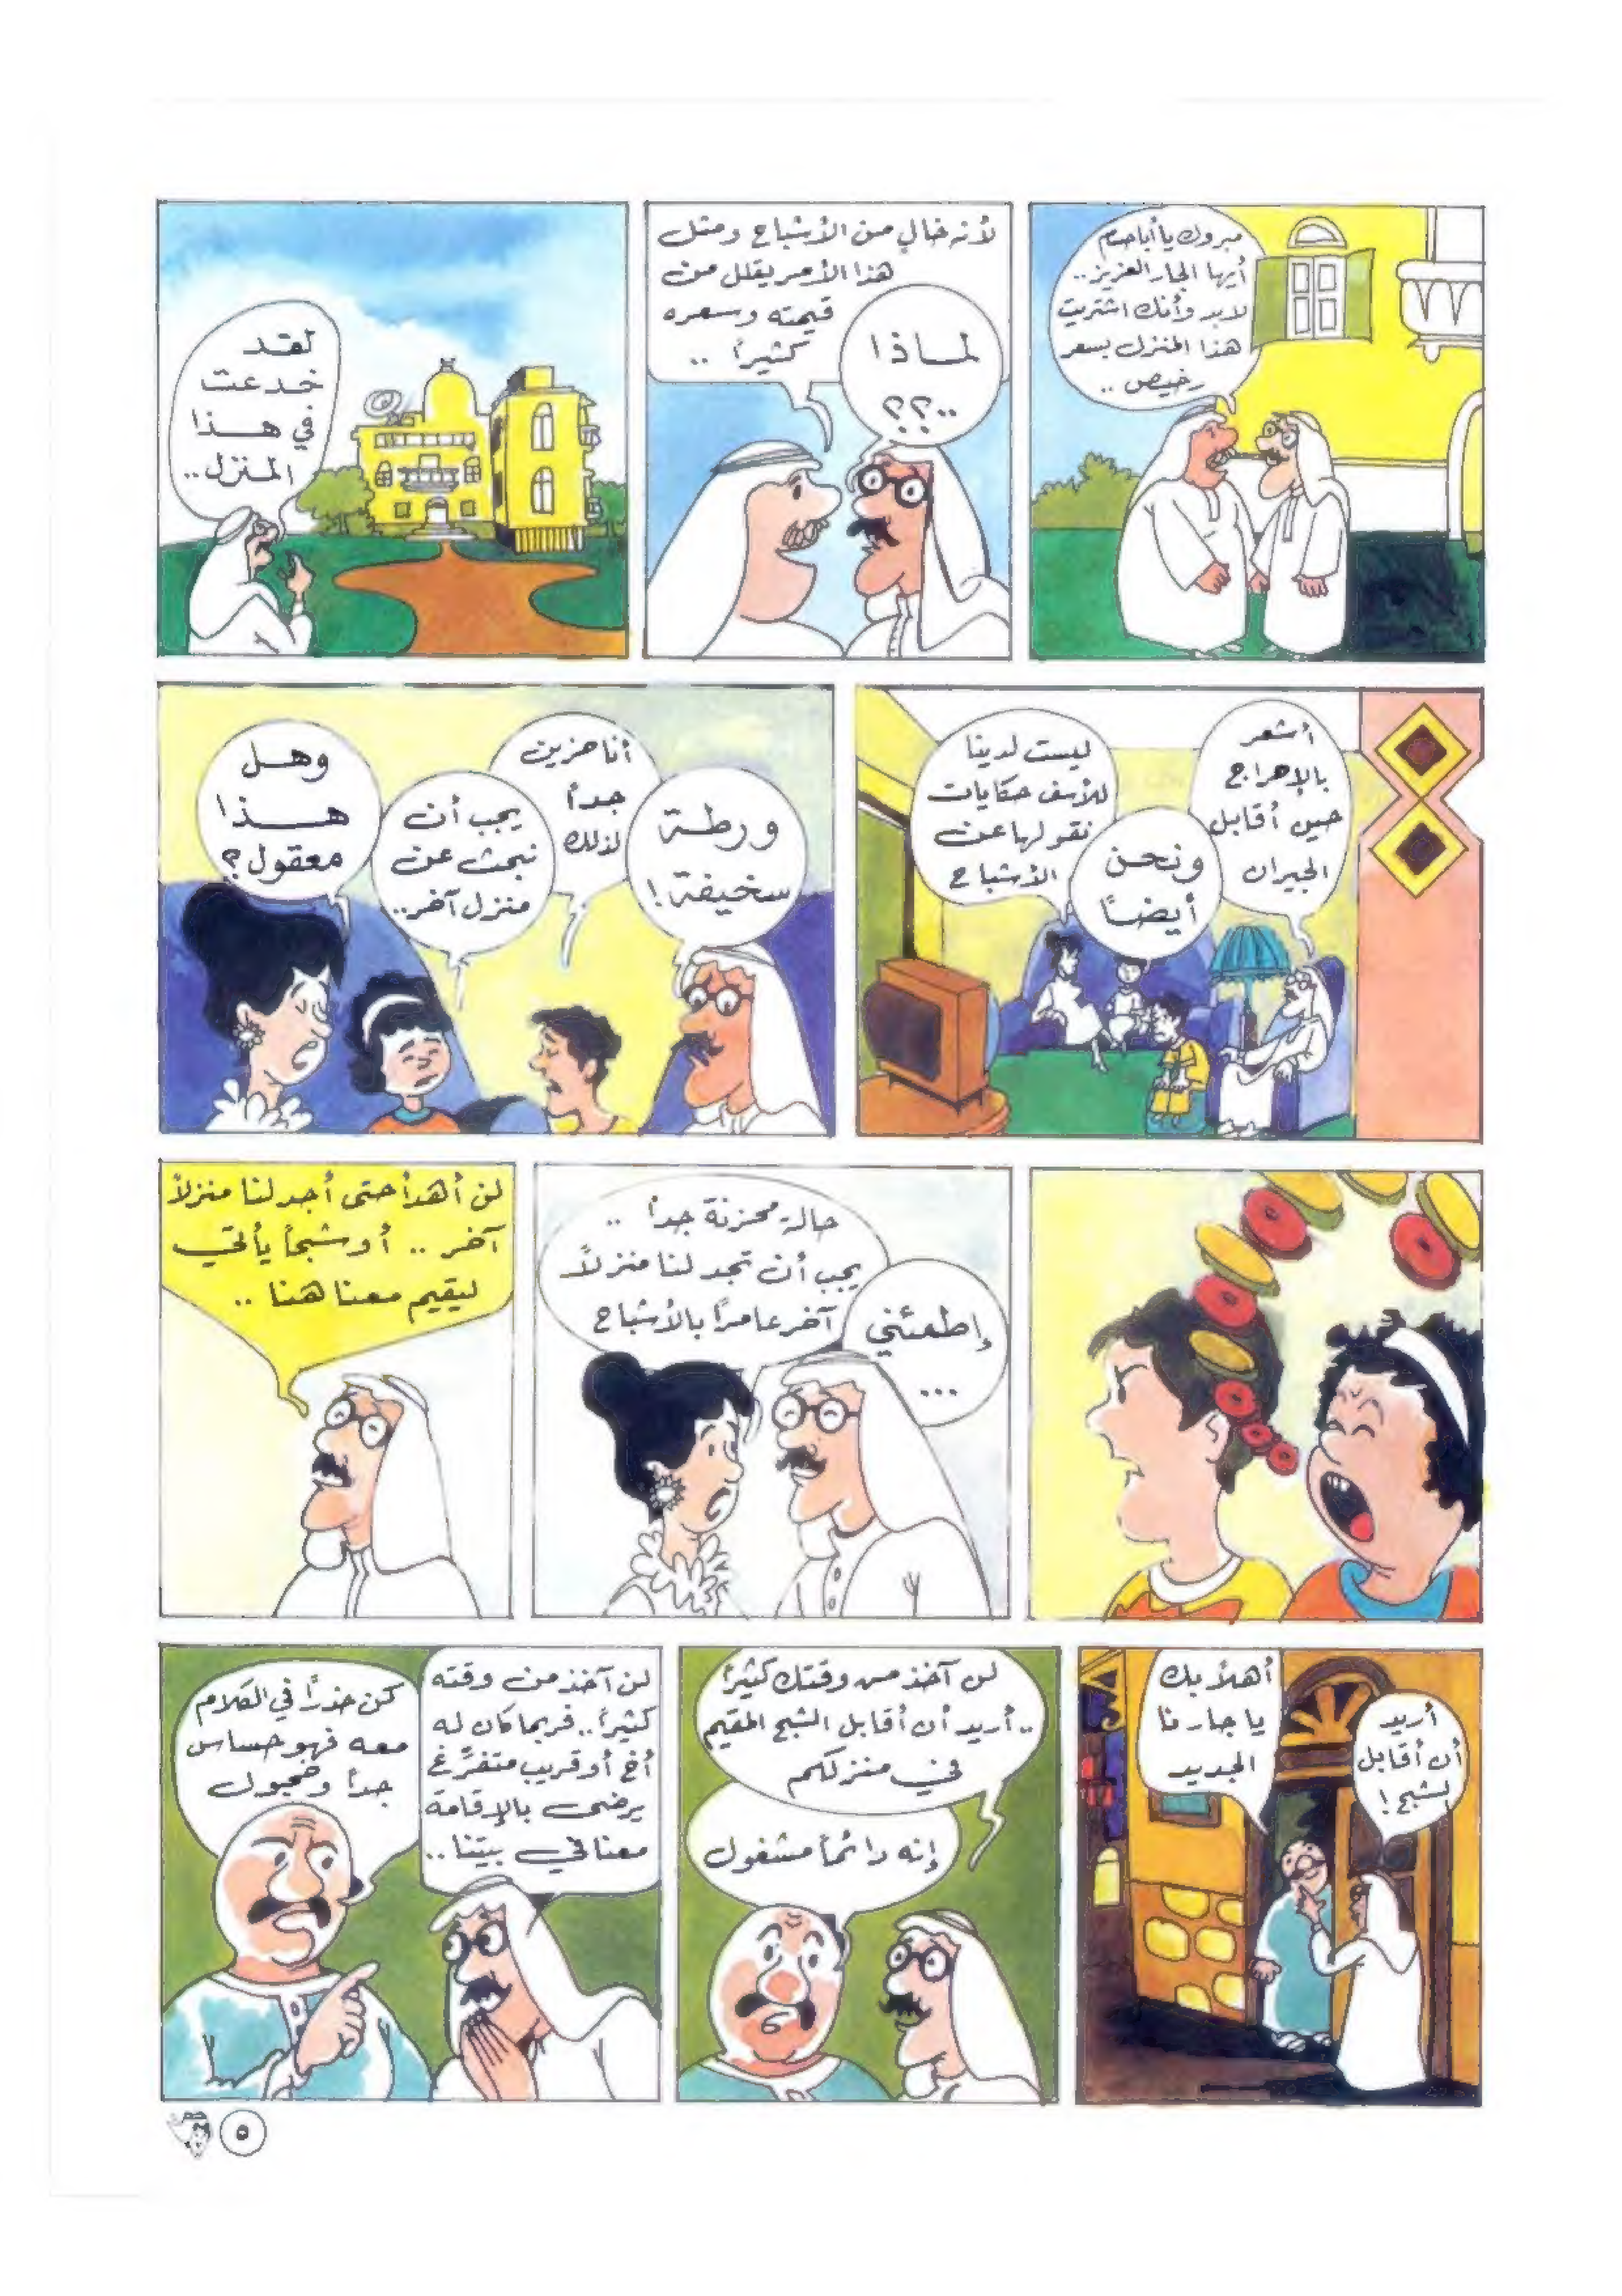 مبروك يا أبا حسام
أيها الجار العزيز..
لابد وأنك اشتريت
هذا المنزل بسعر
رخيص ..
لماذا
..؟؟
لأنه خالٍ من الأشباح ومثل
هذا الأمر يقلل من
قيمته وسعره
كثيراً ..
لقد
خدعت
في هذا
المنزل..
أشعر
بالإحراج
حين أقابل
الجيران
ونحن
أيضاً
ليست لدينا
للأسف حكايات
نقولها عن
الأشباح
ورطة
سخيفة!
أنا حزين
جداً
لذلك
يجب أن
نبحث عن
منزل آخر..
وهل
هذا
معقول؟
حالة محزنة جداً ..
يجب أن تجد لنا منزلاً
آخر عامراً بالأشباح
إطمئني
...
لن أهدأ حتى أجد لنا منزلاً
آخر .. أو شبحاً يأتي
ليقيم معنا هنا ..
أريد
أن أقابل
الشبح!
أهلاً بك
يا جارنا
الجديد
لن آخذ من وقتك كثيراً
.. أريد أن أقابل الشبح المقيم
في منزلكم
إنه دائماً مشغول
لن آخذ من وقته
كثيراً.. فربما كان له
أخ أو قريب متفرّغ
يرضى بالإقامة
معنا في بيتنا..
كن حذراً في الكلام
معه فهو حساس
جداً وخجول
٥